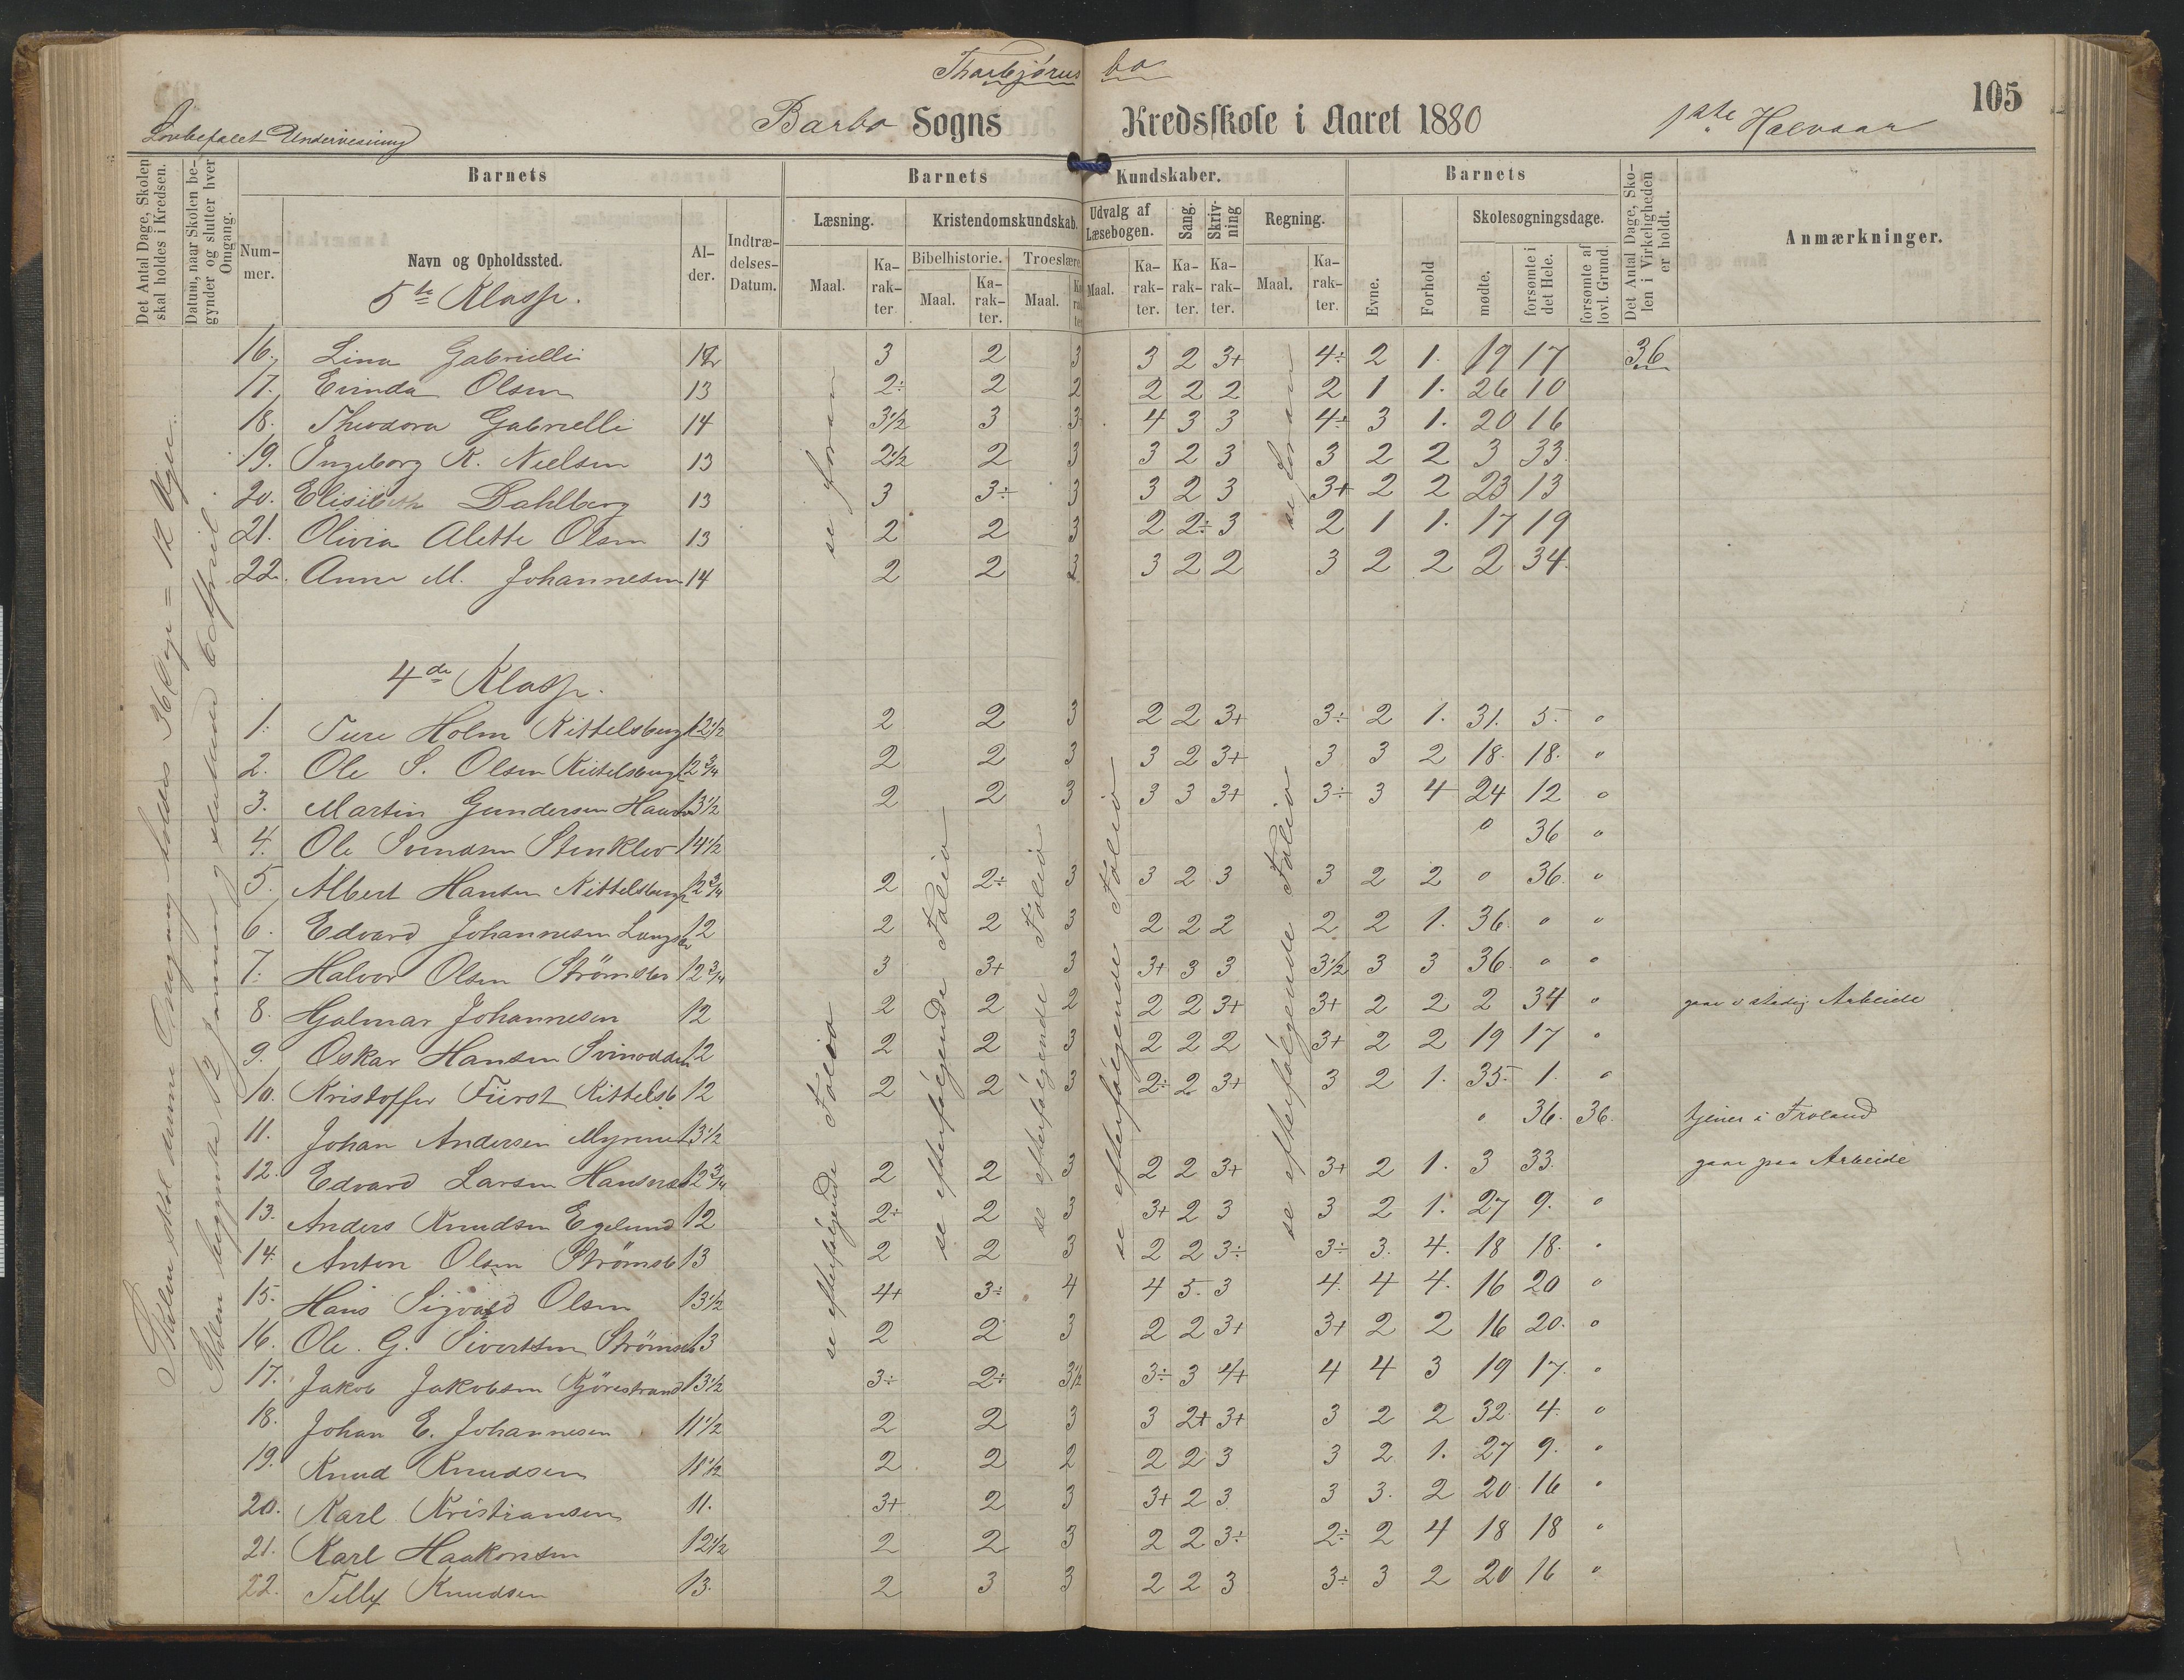 Thorbjørnsbo
105
Lovbefalet Undervisning
Barbo Sogns Kredsskole i Aaret 1880 1ste Halvaar
Det Antal Dage, Skolen skal holdes i Kredsen.
Datum, naar Skolen begynder og slutter hver Omgang.
Barnets
Barnets Kundskaber.
Barnets
Det Antal Dage, Skolen i Virkeligheden er holdt.
Anmærkninger.
Nummer.
Navn og Opholdssted.
Alder.
Indtrædelses-Datum.
Læsning.
Kristendomskundskab.
Udvalg af Læsebogen.
Sang.
Skrivning
Regning.
Evne.
Forhold
Skolesøgningsdage.
Bibelhistorie. Troeslære
Maal. Karakter
Maal. Karakter.
Maal. Karakter
Maal. Karakter.
Karakter.
Karakter.
Maal. Karakter.
mødte.
forsømte i det Hele.
forsømte af lovl. Grund.
5te Klasse.
Skolen skal denne Omgang holdes 36 Dage = 12 Uger.
Skolen begyndte 12 Januar og sluttede 6 April.
se foran
se foran
16. Lina Gabrielli 12 3 2 3 3 2 3+ 4÷ 2 1. 19 17 36
17. Evinda Olsen 13 2÷ 2 2 2 2 2 2 1 1. 26 10
18. Theodora Gabrielli 14 3½ 3 3 4 3 3 4÷ 3 1. 20 16
19. Ingeborg K. Nielsen 13 2½ 2 3 3 2 3 3 2 2 3 33.
20. Elisibeth Dahlberg 13 3 3÷ 3 3 2 3 3+ 2 2 23 13
21. Olivia Alette Olsen 13 2 2 3 2 2÷ 3 2 1 1. 17 19
22. Anne M. Johannesen 14 2 2 3 3 2 2 3 2 2 2 34.
4de Klasse.
se efterfølgende Folioa
se efterfølgende Folio
se efterfølgende Folio
se efterfølgende Folio
se efterfølgende Folio
1. Ture Holm Kittelsbugt 12½ 2 2 3 2 2 3+ 3÷ 2 1. 31. 5. 0
2. Ole S. Olsen Kittelsbugt 12¾ 2 2 3 3 2 3+ 3 3 2 18. 18. 0
3. Martin Gundersen 13½ 2 2 3 3 3 3+ 3÷ 3 4 24 12 0
4. Ole Svendsen Stenklev 14½ 0 36 0
5. Albert Hansen Kittelsbugt 12¾ 2 2÷ 3 3 2 3 3 2 2 0 36. 0
6. Edvard Johannesen Langsæ 12 2 2 3 2 2 2 2 2 1. 36. 0 0
7. Halvor Olsen Strømsbo 12¾ 3 3+ 3 3+ 3 3 3½ 3 3 36. 0 0
8. Hjalmar Johannesen 12 2 2 2 2 2 3+ 3+ 2 2 2 34 0 gaar i stadig Arbeide
9. Oskar Hansen Svinodden 12 2 2 3 2 2 2 3+ 2 2 19 17 0
10. Kristoffer Fürst Kittelsb 12 2 2 3 2÷ 2 3+ 3 2 1. 35. 1. 0
11. Johan Andersen Myrene 13½ 0 36. 36. tjener i Froland
12. Edvard Larsen 12¾ 2 2 3 2 2 3+ 3+ 2 1. 3 33. gaar paa Arbeide
13. Anders Knudsen Egelund 12 2÷ 2 3 3+ 2 3 3 2 1. 27 9. 0
14. Anton Olsen Strømsb 13 2 2 3 2 2 3÷ 3÷ 3. 4. 18 18. 0
15. Hans Sigvald Olsen 13½ 4+ 3÷ 4 4 5. 3 4. 4 4. 16 20 0
16. Ole. G. Sivertsen Strømsb 13 2 2 3 2 2 3+ 3+ 2 2 16 20. 0
17. Jakob Jakobsen Kjørestrand 13½ 3÷ 2÷ 3½ 3÷ 3 4+ 4 4 3 19 17. 0
18. Johan E. Johannesen 11½ 2 2 3 3 2+ 3+ 3 2 2 32. 4. 0
19. Knud Knudsen 11½ 2 2 2 2 2 3 3 2 1. 27 9. 0
20. Karl Kristiansen 11. 3+ 2 3 3+ 2 3 3 3. 2 20. 16 0
21. Karl Haakonsen 12½ 2 2 3 2 2 3÷ 2÷ 2 4 18 18 0
22. Tellef Knudsen 13. 2 3 3 2 2 3 3÷ 3 2 20 16 0